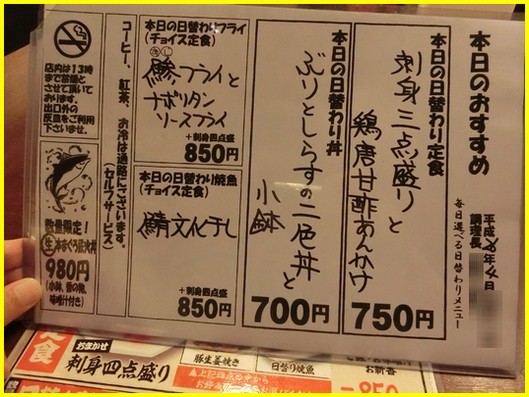 本日のおすすめ
毎日選べる日替わりメニュー
平成
調理長
本日の日替わり定食
刺身三点盛りと
鶏唐甘酢あんかけ
750円
本日の日替わり丼
ぶりとしらすの二色丼と
小鉢
700円
本日の日替わりフライ
(チョイス定食)
フライと
ナポリタン
ソースフライ
+刺身四点盛
850円
本日の日替わり焼魚
(チョイス定食)
鯖文化干し
+刺身四点盛
850円
コーヒー、紅茶、お冷は通路にございます。
(セルフサービス)
店内は13時
まで禁煙と
させて頂いて
おります。
出口外の
灰皿をご利用
下さいませ。
数量限定!
生本まぐろ
980円
(小鉢、香の物、
味噌汁付き)
定食
おまかせ
刺身四点盛り
豚生姜焼き
日替り焼魚
お新香
▲上記四点の中から
850